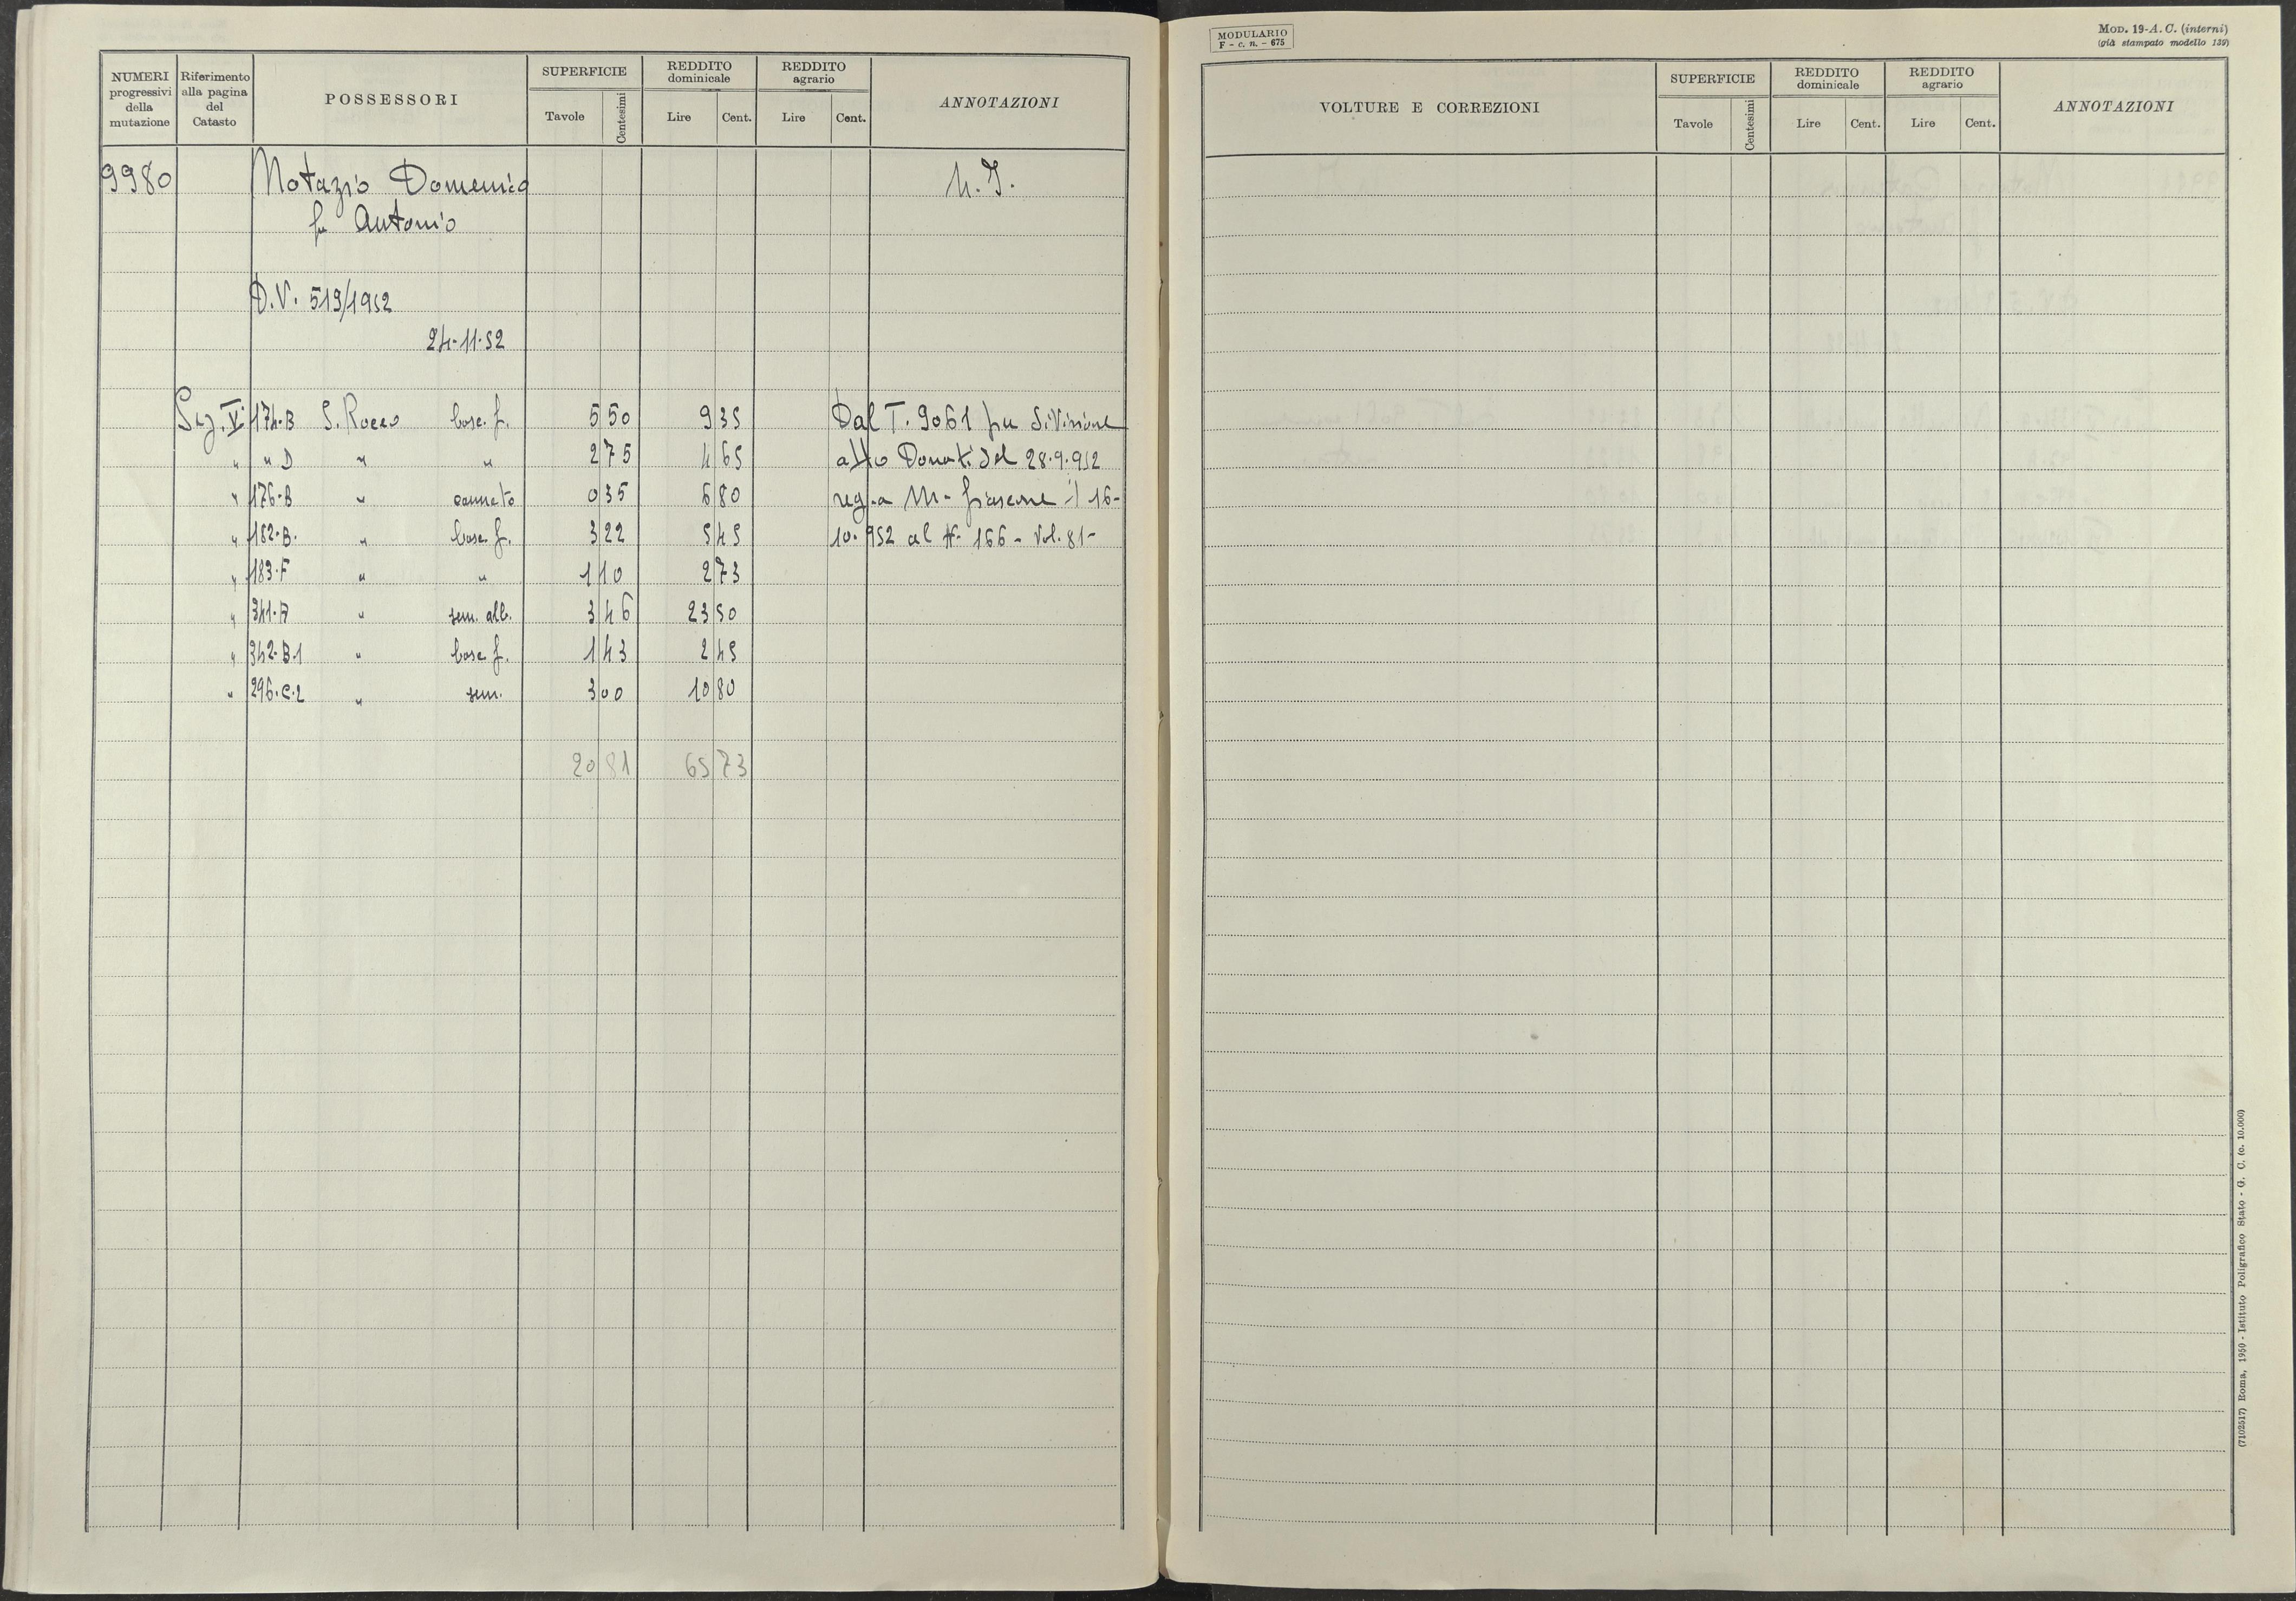 NUMERI progressivi della mutazione
Riferimento alla pagina del Catasto
POSSESSORI
SUPERFICIE
Tavole Centesimi
REDDITO dominicale
Lire Cent.
REDDITO agrario
Lire Cent.
ANNOTAZIONI
9980 Notazio Domenico N.I.
fu Antonio
D.V. 519/1952
24-11-52
Sez. V 174-B S. Rocco bosc. f. 5 50 9 35 Dal T. 9061 per divisione
" " D " " 2 75 4 65 atto Donati del 28.9.952
" 176-B " canneto 0 35 6 80 reg. a M- fiascone il 16-
" 182-B. " bosc. f. 3 22 5 45 10.952 al N- 166 - Vol. 81-
" 183-F " " 1 10 2 73
" 341-A " sem. alb. 3 46 23 50
" 342-B.1 " bosc. f. 1 43 2 45
" 296.C.2 " sem. 3 00 10 80
20 81 65 73
MODULARIO
F - c. n. - 675
MOD. 19-A. C. (interni)
(già stampato modello 139)
VOLTURE E CORREZIONI
SUPERFICIE
Tavole Centesimi
REDDITO dominicale
Lire Cent.
REDDITO agrario
Lire Cent.
ANNOTAZIONI
(7102517) Roma, 1950 - Istituto Poligrafico Stato - G. C. (c. 10.000)